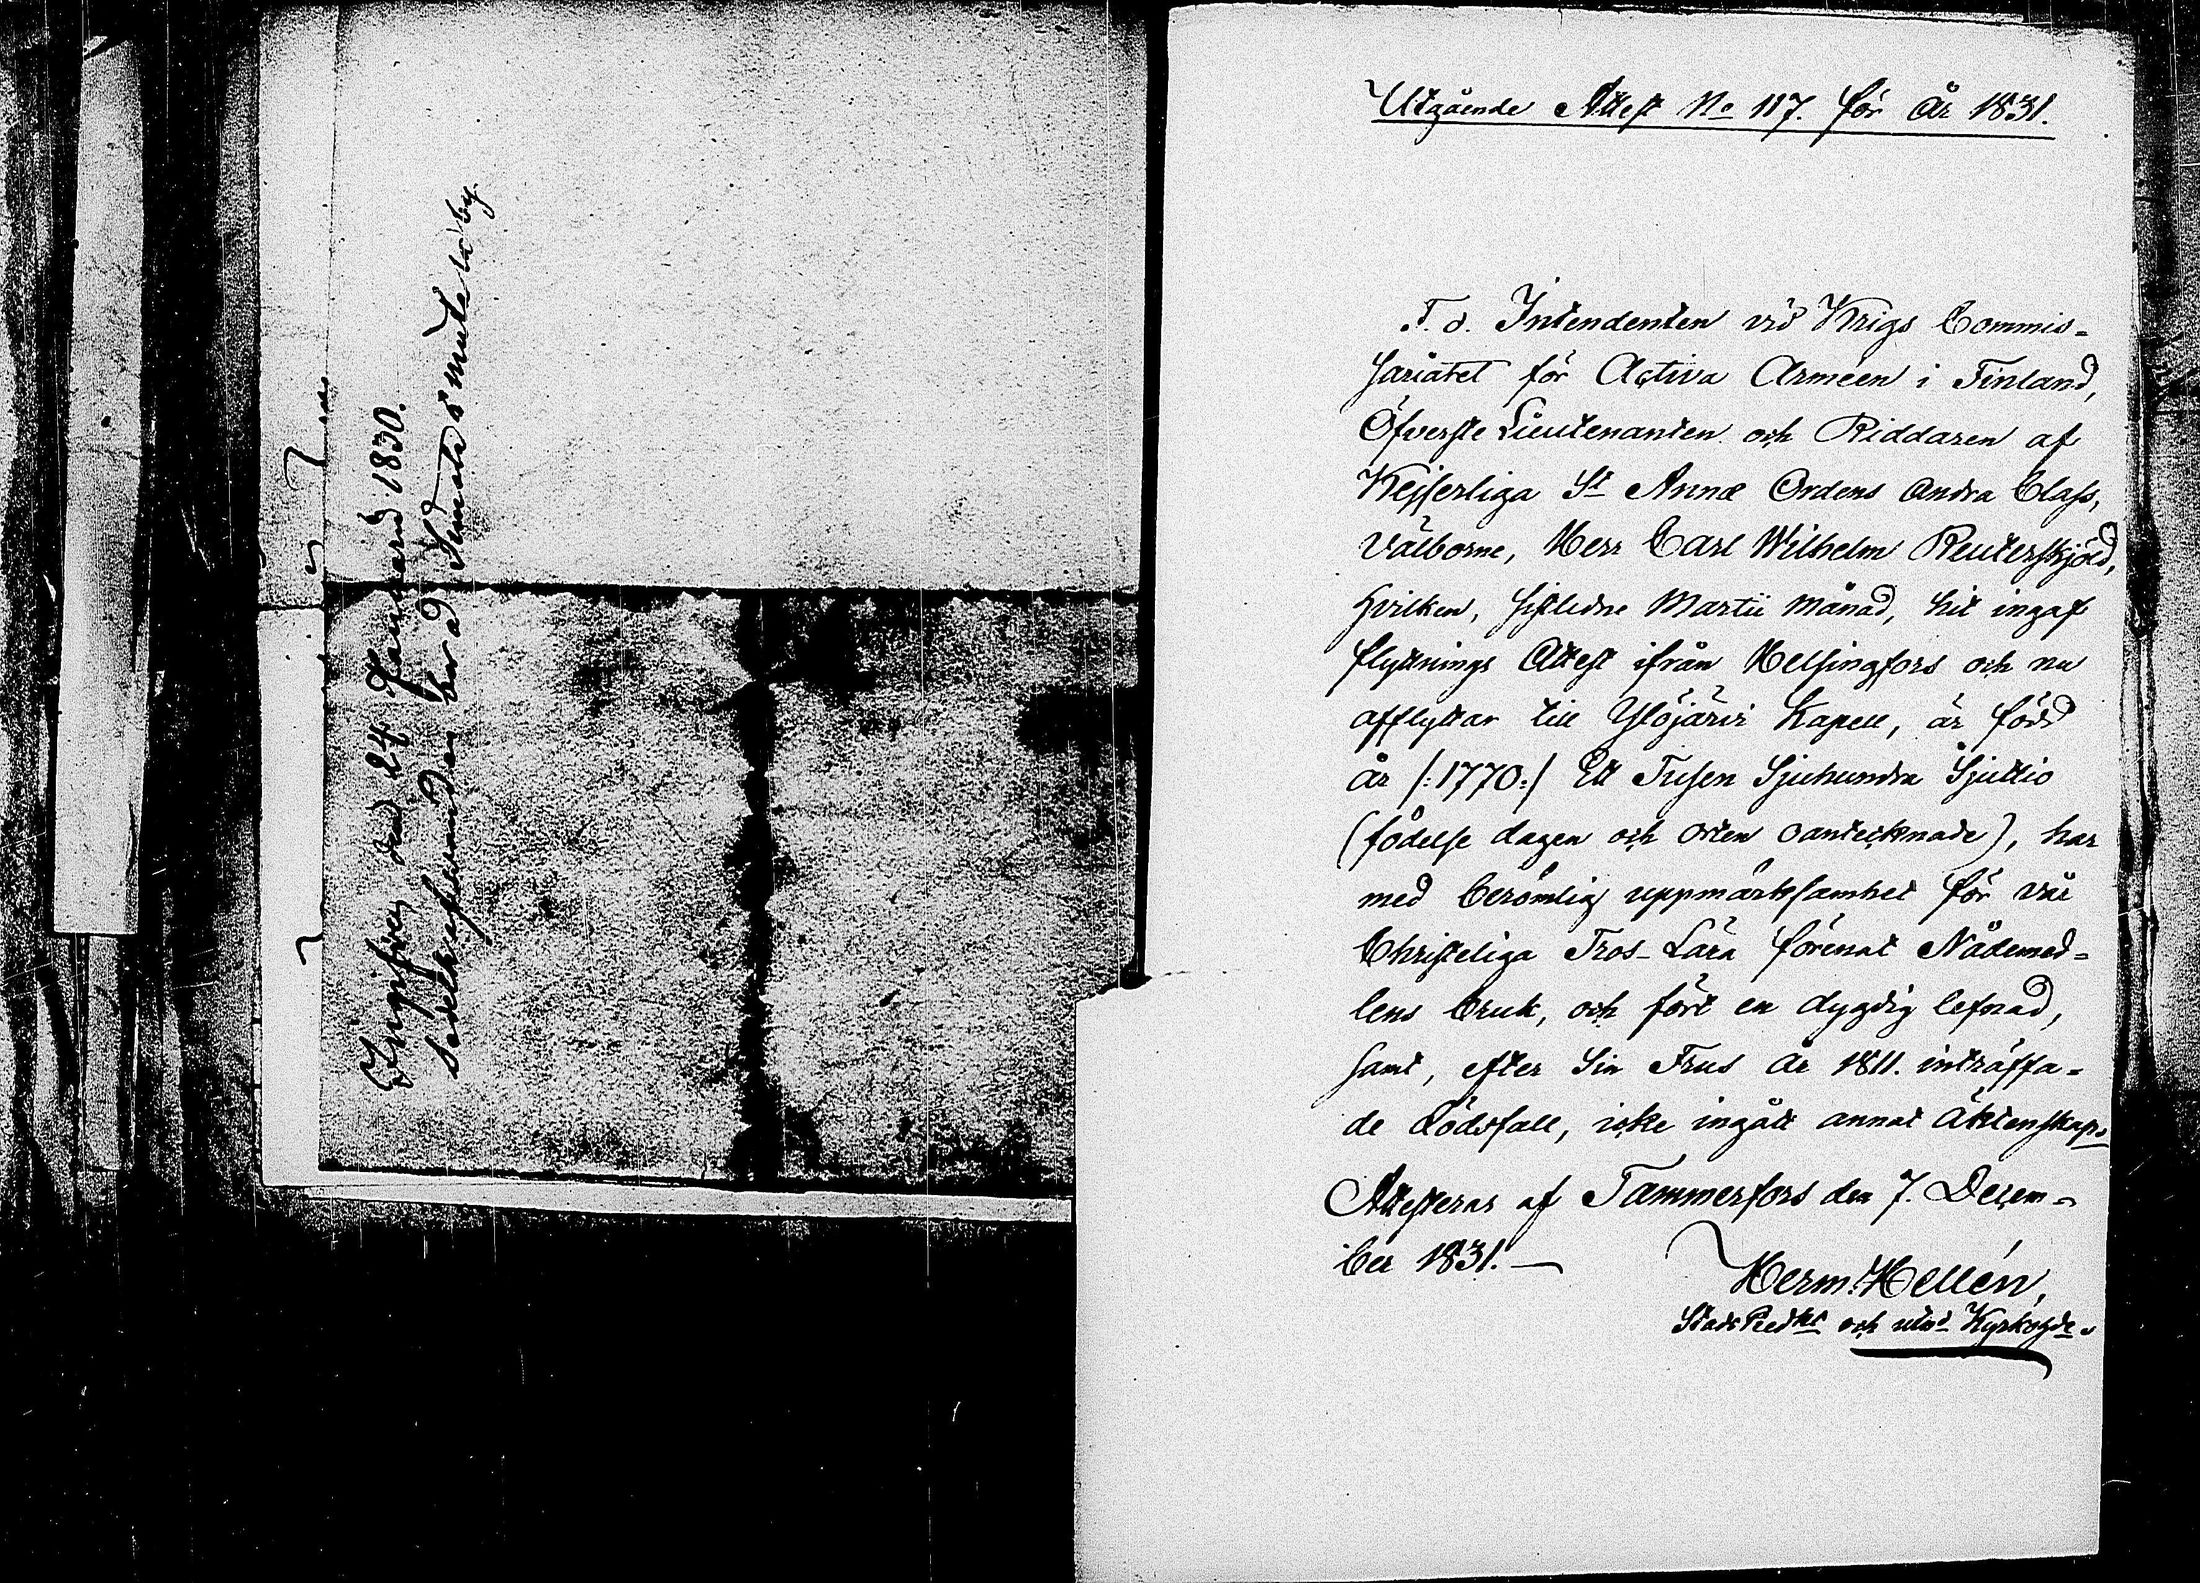 den 24 Januarii 1830.
Utgående Attest No 117. för år 1831.
F. d. Intendenten vid Krigs Commis-
sariatet för Activa Armeen i Finland,
Öfverste Lieutenanten och Riddaren af
Kejserliga St Annæ Ordens andra Class,
Välborne, Herr Carl Wilhelm Reuterskjöld,
hvilken, sistledne Martii månad, hit ingaf
flyttnings Attest ifrån Helsingfors och nu
afflyttar till Ylöjärvi Kapell, är född
år /:1770:/ Ett Tusen Sjuhundra Sjuttio
(födelse dagen och orten oantecknade), har
med berömlig uppmärksamhet för vår
Christeliga Tros-Lära förenat Nådemed-
lens bruk, och fört en dygdig lefnad,
samt, efter Sin Frus år 1811. inträffa-
de Dödsfall, icke ingått annat Äktenskap.
Attesteras af Tammerfors den 7. Decem-
ber 1831.—
Herm. Hellén,
och